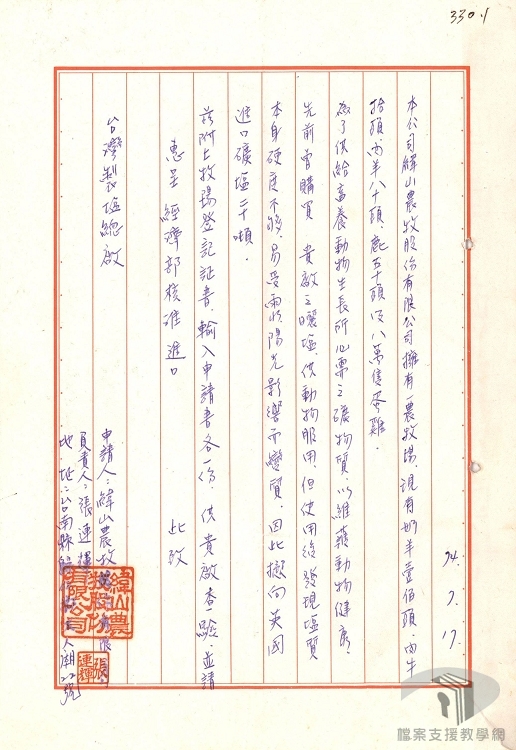 330.1
74. 7. 17.
本公司緯山農牧股份有限公司擁有一農牧場,現有奶羊壹佰頭,肉牛
拾頭,肉羊八十頭,鹿五十頭及八萬隻蛋雞.
為了供給畜養動物生長所必需之礦物質,以維護動物健康,
先前曾購買 貴廠之曬塩,供動物服用,但使用後發現塩質
本身硬度不夠,易受雨水陽光影響而變質,因此擬向英國
進口礦塩二十噸.
茲附上牧場登記証書,輸入申請書各一份,供貴廠查驗,並請
惠呈經濟部核准進口
此致
台灣製塩總廠
申請人:緯山農牧股份有限
負責人:張連輝
地 址:台南縣
緯山農牧股份有限公司
張連輝
檔案支援教學網